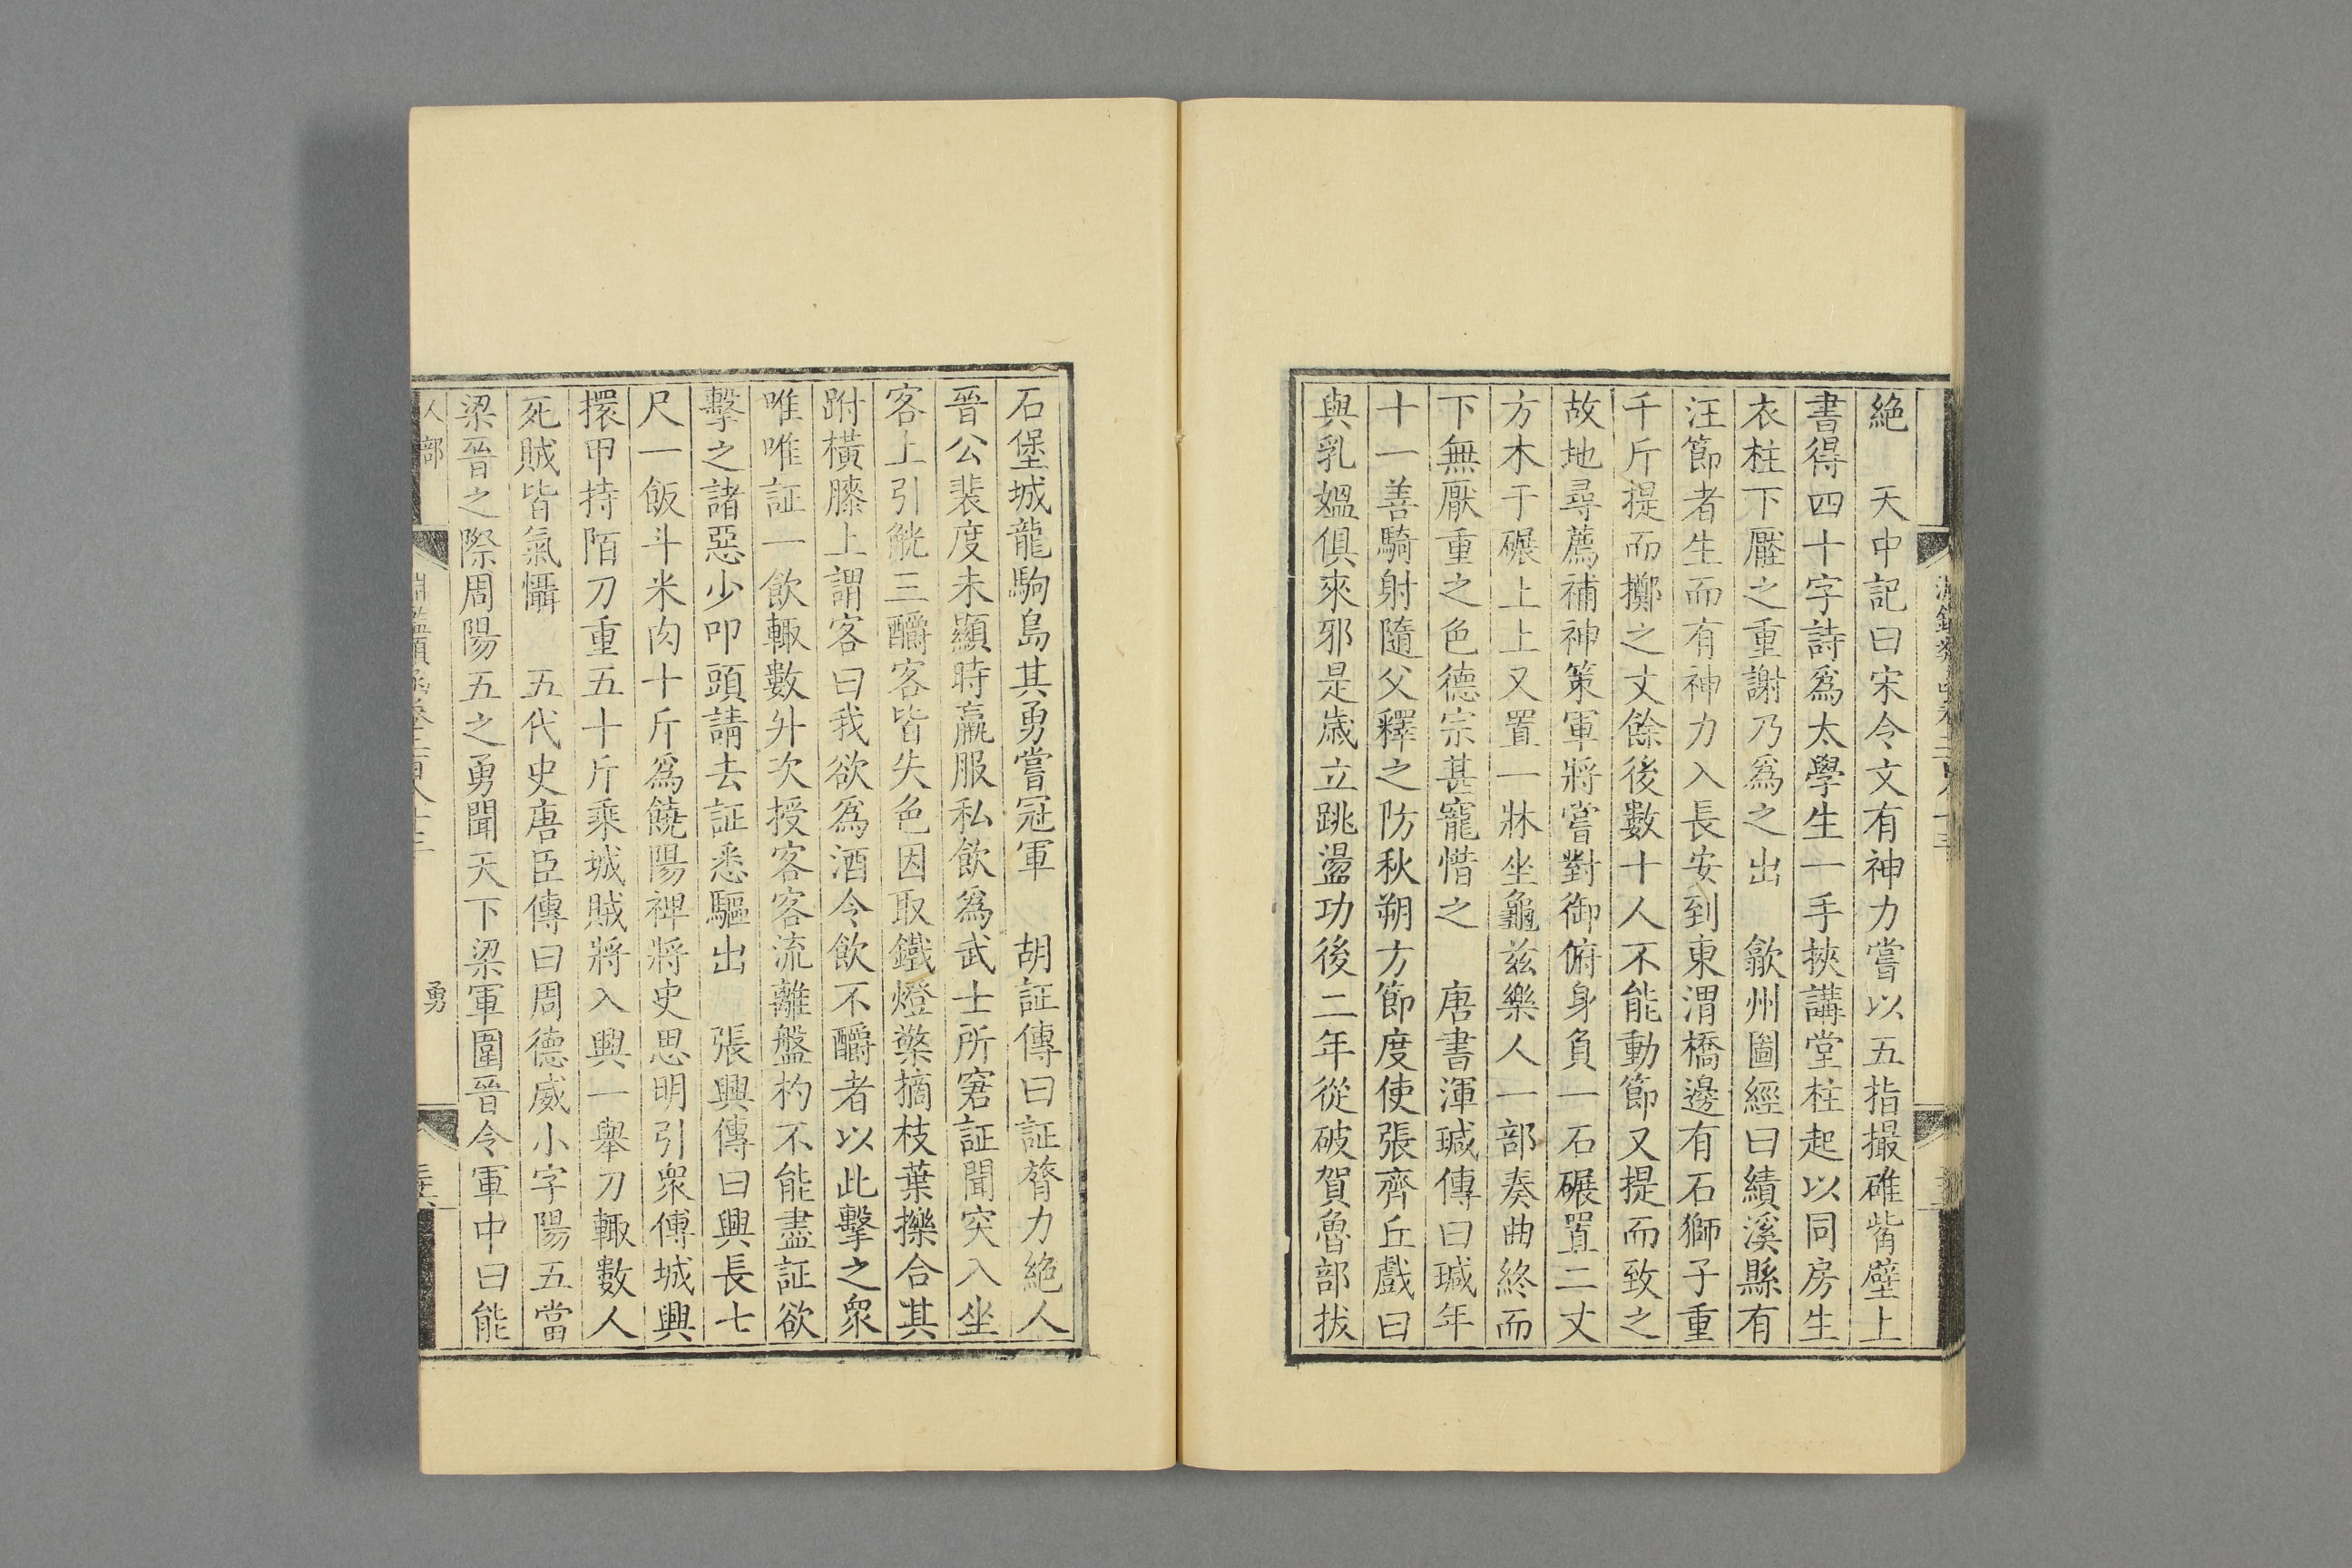 絶　天中記曰宋令文有神力嘗以五指撮碓觜壁上
書得四十字詩爲太學生一手挾講堂柱起以同房生
衣柱下壓之重謝乃爲之出　歙州圖經曰績溪縣有
汪節者生而有神力入長安到東渭橋邊有石獅子重
千斤提而擲之丈餘後數十人不能動節又提而致之
故地尋薦補神策軍將嘗對御俯身負一石碾置二丈
方木于碾上上又置一牀坐龜兹樂人一部奏曲終而
下無厭重之色德宗甚寵惜之　唐書渾瑊傳曰瑊年
十一善騎射隨父釋之防秋朔方節度使張齊丘戲曰
與乳媼俱來邪是歲立跳盪功後二年從破賀魯部拔
石堡城龍駒島其勇嘗冠軍　胡証傳曰証膂力絶人
晉公裴度未顯時羸服私飲爲武士所窘証聞突入坐
客上引觥三釂客皆失色因取鐵燈檠摘枝葉擽合其
跗橫膝上謂客曰我欲爲酒令飲不釂者以此擊之衆
唯唯証一飲輒數升次授客客流離盤杓不能盡証欲
擊之諸惡少叩頭請去証悉驅出　張興傳曰興長七
尺一飯斗米肉十斤爲饒陽裨將史思明引衆傅城興
擐甲持陌刀重五十斤乘城賊將入興一舉刀輒數人
死賊皆氣懾　五代史唐臣傳曰周德威小字陽五當
梁晉之際周陽五之勇聞天下梁軍圍晉令軍中曰能
人部　勇